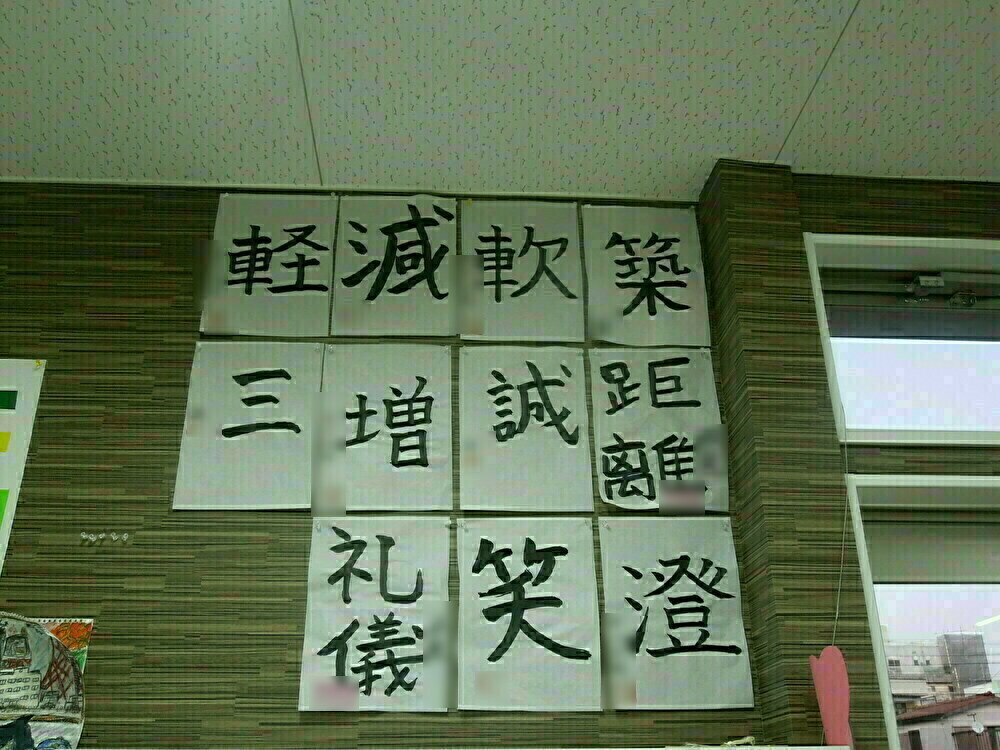 軽
減
軟
築
三
増
誠
距
離
礼
儀
笑
澄